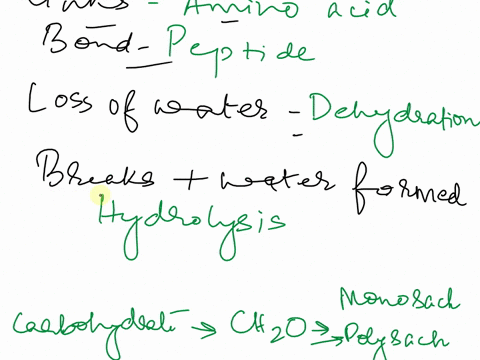 Units - Amino acid
Bond - Peptide
Loss of water - Dehydration
Breaks + water formed
Hydrolysis
Monosach
Carbohydrate → CH2O → Polysach